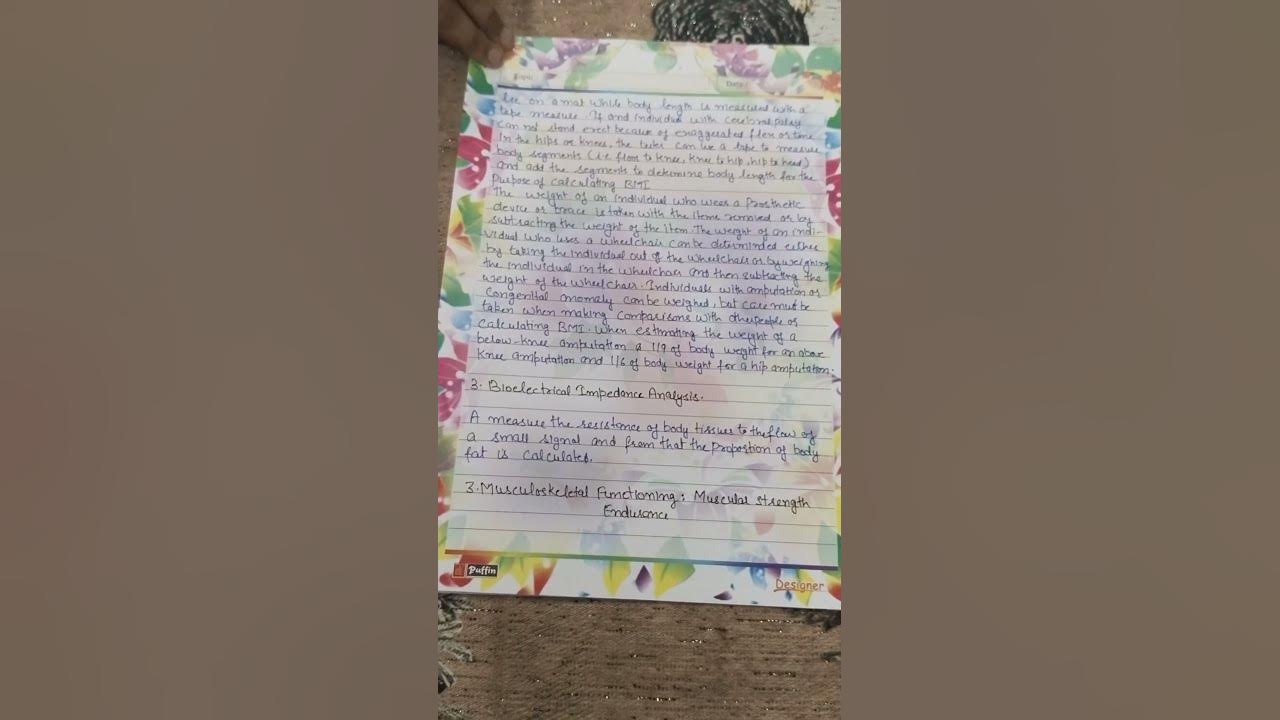 Topic:
Date:
lie on a mat while body length is measured with a
tape measure. If and individual with cerebral palsy
can not stand erect because of exaggerated flexor tone
in the hips or knees, the tester can use a tape to measure
body segments (i.e floor to knee, knee to hip, hip to head)
and add the segments to determine body length for the
purpose of calculating BMI
The weight of an individual who wears a prosthetic
device or brace is taken with the items removed or by
subtracting the weight of the item. The weight of an indi-
vidual who uses a wheelchair can be determinded either
by taking the individual out of the wheelchair or by weighing
the individual in the wheelchair and then subtracting the
weight of the wheelchair. Individuals with amputation or
Congenital anomaly can be weighed, but care must be
taken when making comparisons with other people or
calculating BMI. When estimating the weight of a
below-knee amputation a 1/9 of body weight for an above
knee amputation and 1/6 of body weight for a hip amputation.
3. Bioelectrical Impedance Analysis.
A measure the resistance of body tissues to the flow of
a small signal and from that the proportion of body
fat is calculates.
3. Musculoskeletal Functioning: Muscular strength
Endurance
Puffin
Designer